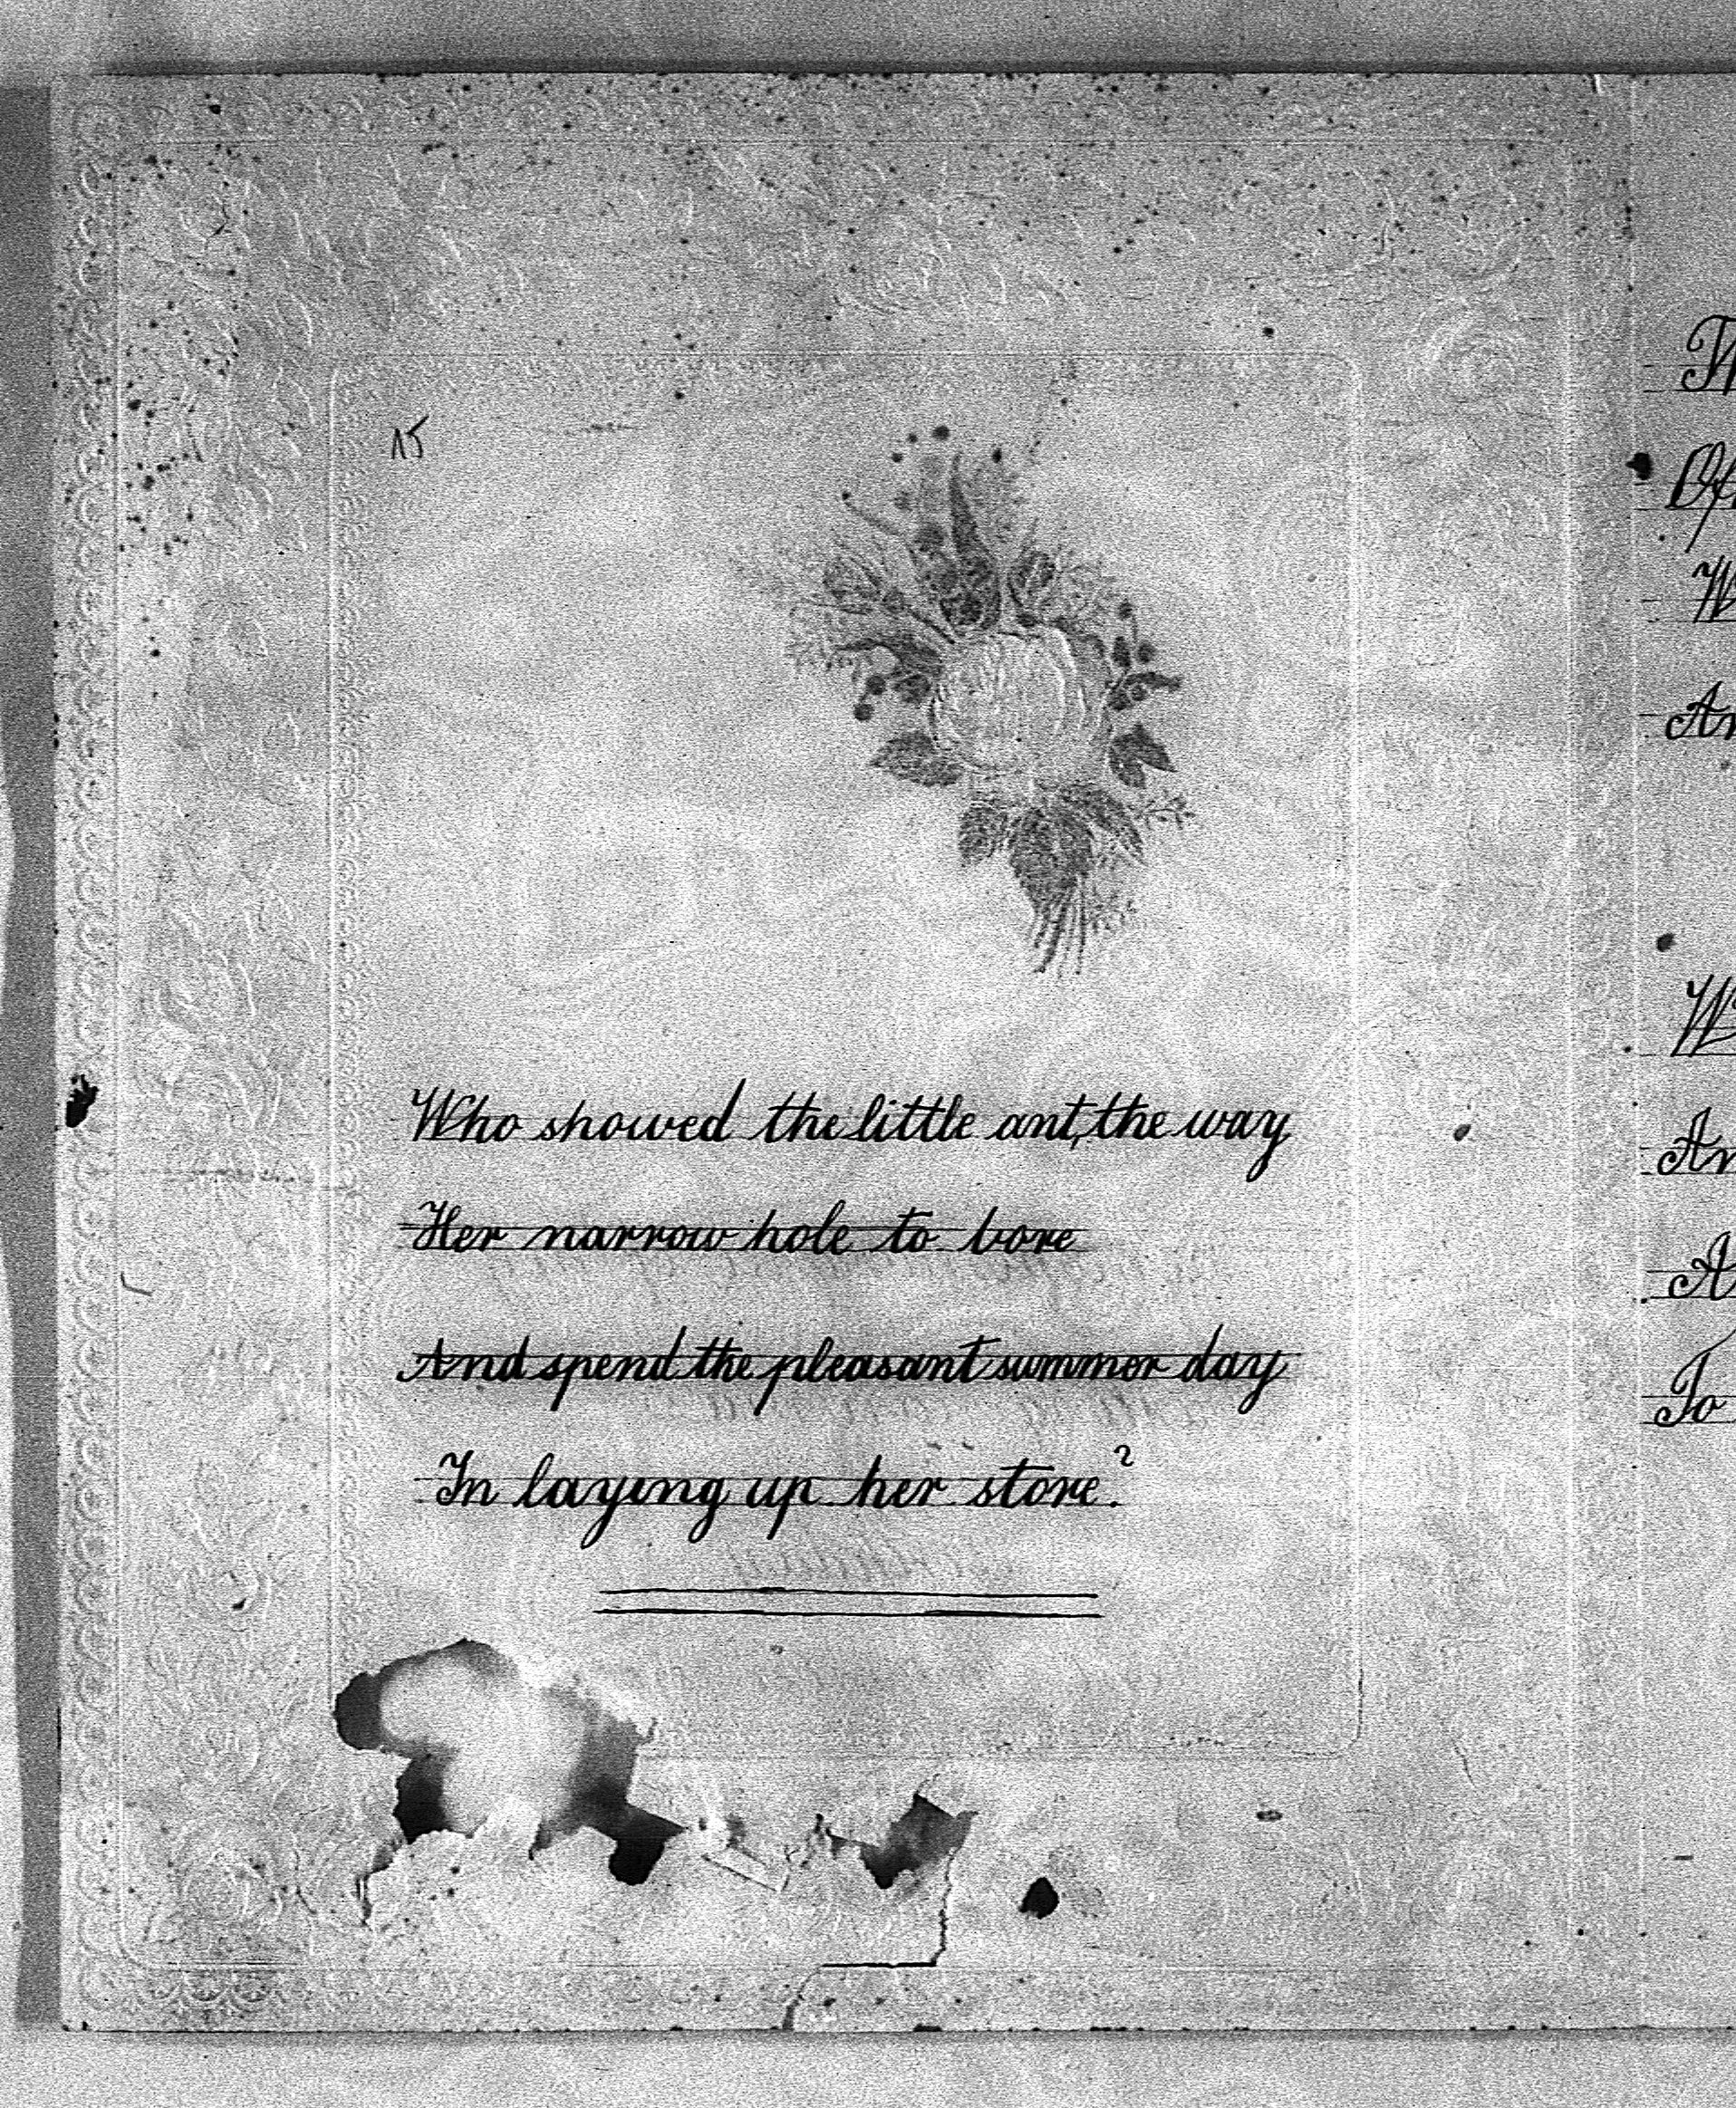 15
Who showed the little ant, the way
Her narrow hole to bore
And spend the pleasant summer day
In laying up her store.?
An
To